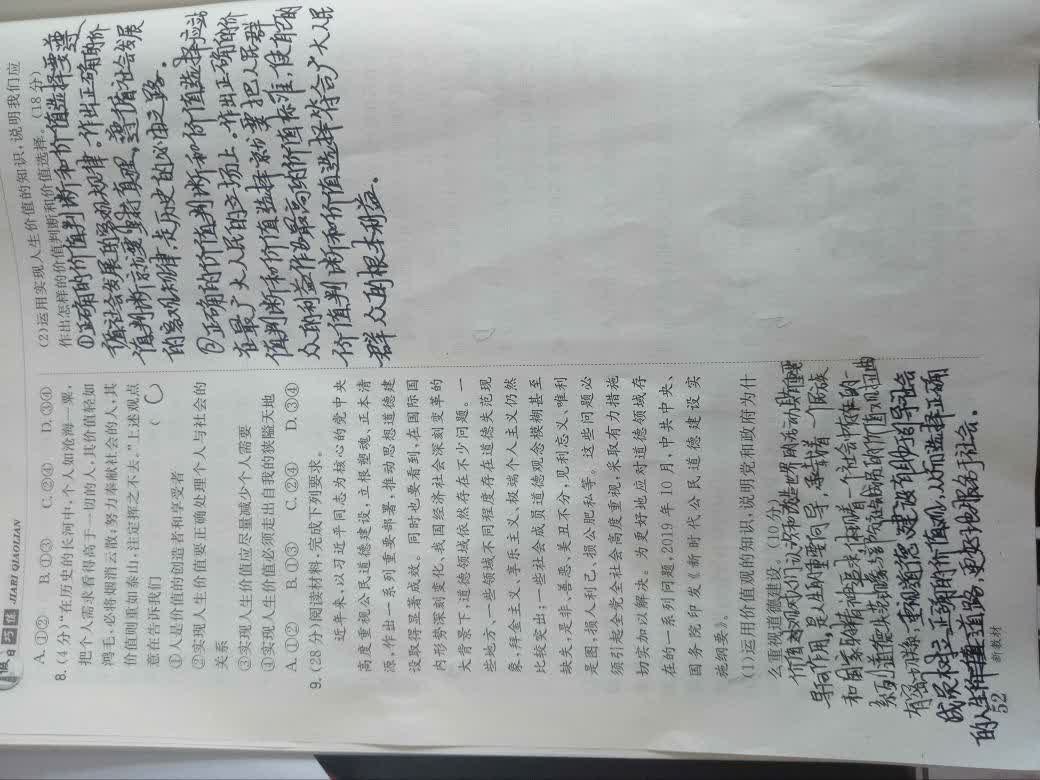 假日巧练 JIARI QIAOLIAN
A.①② B.①③ C.②④ D.③④
8.(4 分)“在历史的长河中,个人如沧海一粟,
把个人需求看得高于一切的人,其价值轻如
鸿毛,必将如消云散;努力奉献社会的人,其
价值则重如泰山,注定挥之不去。”上述观点
意在告诉我们 ( C )
①人是价值的创造者和享受者
②实现人生价值要正确处理个人与社会的
关系
③实现人生价值应尽量减少个人需要
④实现人生价值必须走出自我的狭隘天地
A.①② B.①③ C.②④ D.③④
9.(28 分)阅读材料,完成下列要求。
近年来,以习近平同志为核心的党中央
高度重视公民道德建设,立根塑魂、正本清
源,作出一系列重要部署,推动思想道德建
设取得显著成效。同时也要看到,在国际国
内形势深刻变化、我国经济社会深刻变革的
大背景下,道德领域依然存在不少问题。一
些地方、一些领域不同程度存在道德失范现
象,拜金主义、享乐主义、极端个人主义仍然
比较突出;一些社会成员道德观念模糊甚至
缺失,是非、善恶、美丑不分,见利忘义、唯利
是图,损人利己、损公肥私等。这些问题必
须引起全党全社会高度重视,采取有力措施
切实加以解决。为更好地应对道德领域存
在的一系列问题,2019 年 10 月,中共中央、
国务院印发《新时代公民道德建设实
施纲要》。
(1)运用价值观的知识,说明党和政府为什
么重视道德建设。(10 分)
价值观对人们认识和改造世界的活动具有重要
导向作用,是人生的重要向导,承载着一个民族
和国家的精神追求,体现着一个社会评判的一
系列道德失范现象与部分社会成员的价值观扭曲
有密切联系,重视道德建设有助于引导社会
成员树立正确的价值观,从而选择正确
的人生价值道路,更好地服务于社会。
52 新教材
(2)运用实现人生价值的知识,说明我们应
作出怎样的价值判断和价值选择。(18 分)
①正确的价值判断和价值选择要遵
循社会发展的客观规律。作出正确的价
值判断就要坚持真理,遵循社会发展
的客观规律,走历史的必由之路。
②正确的价值判断和价值选择应站
在最广大人民的立场上。作出正确的价
值判断和价值选择就要把人民群
众的利益作为最高的价值标准,使自己的
价值判断和价值选择符合广大人民
群众的根本利益。